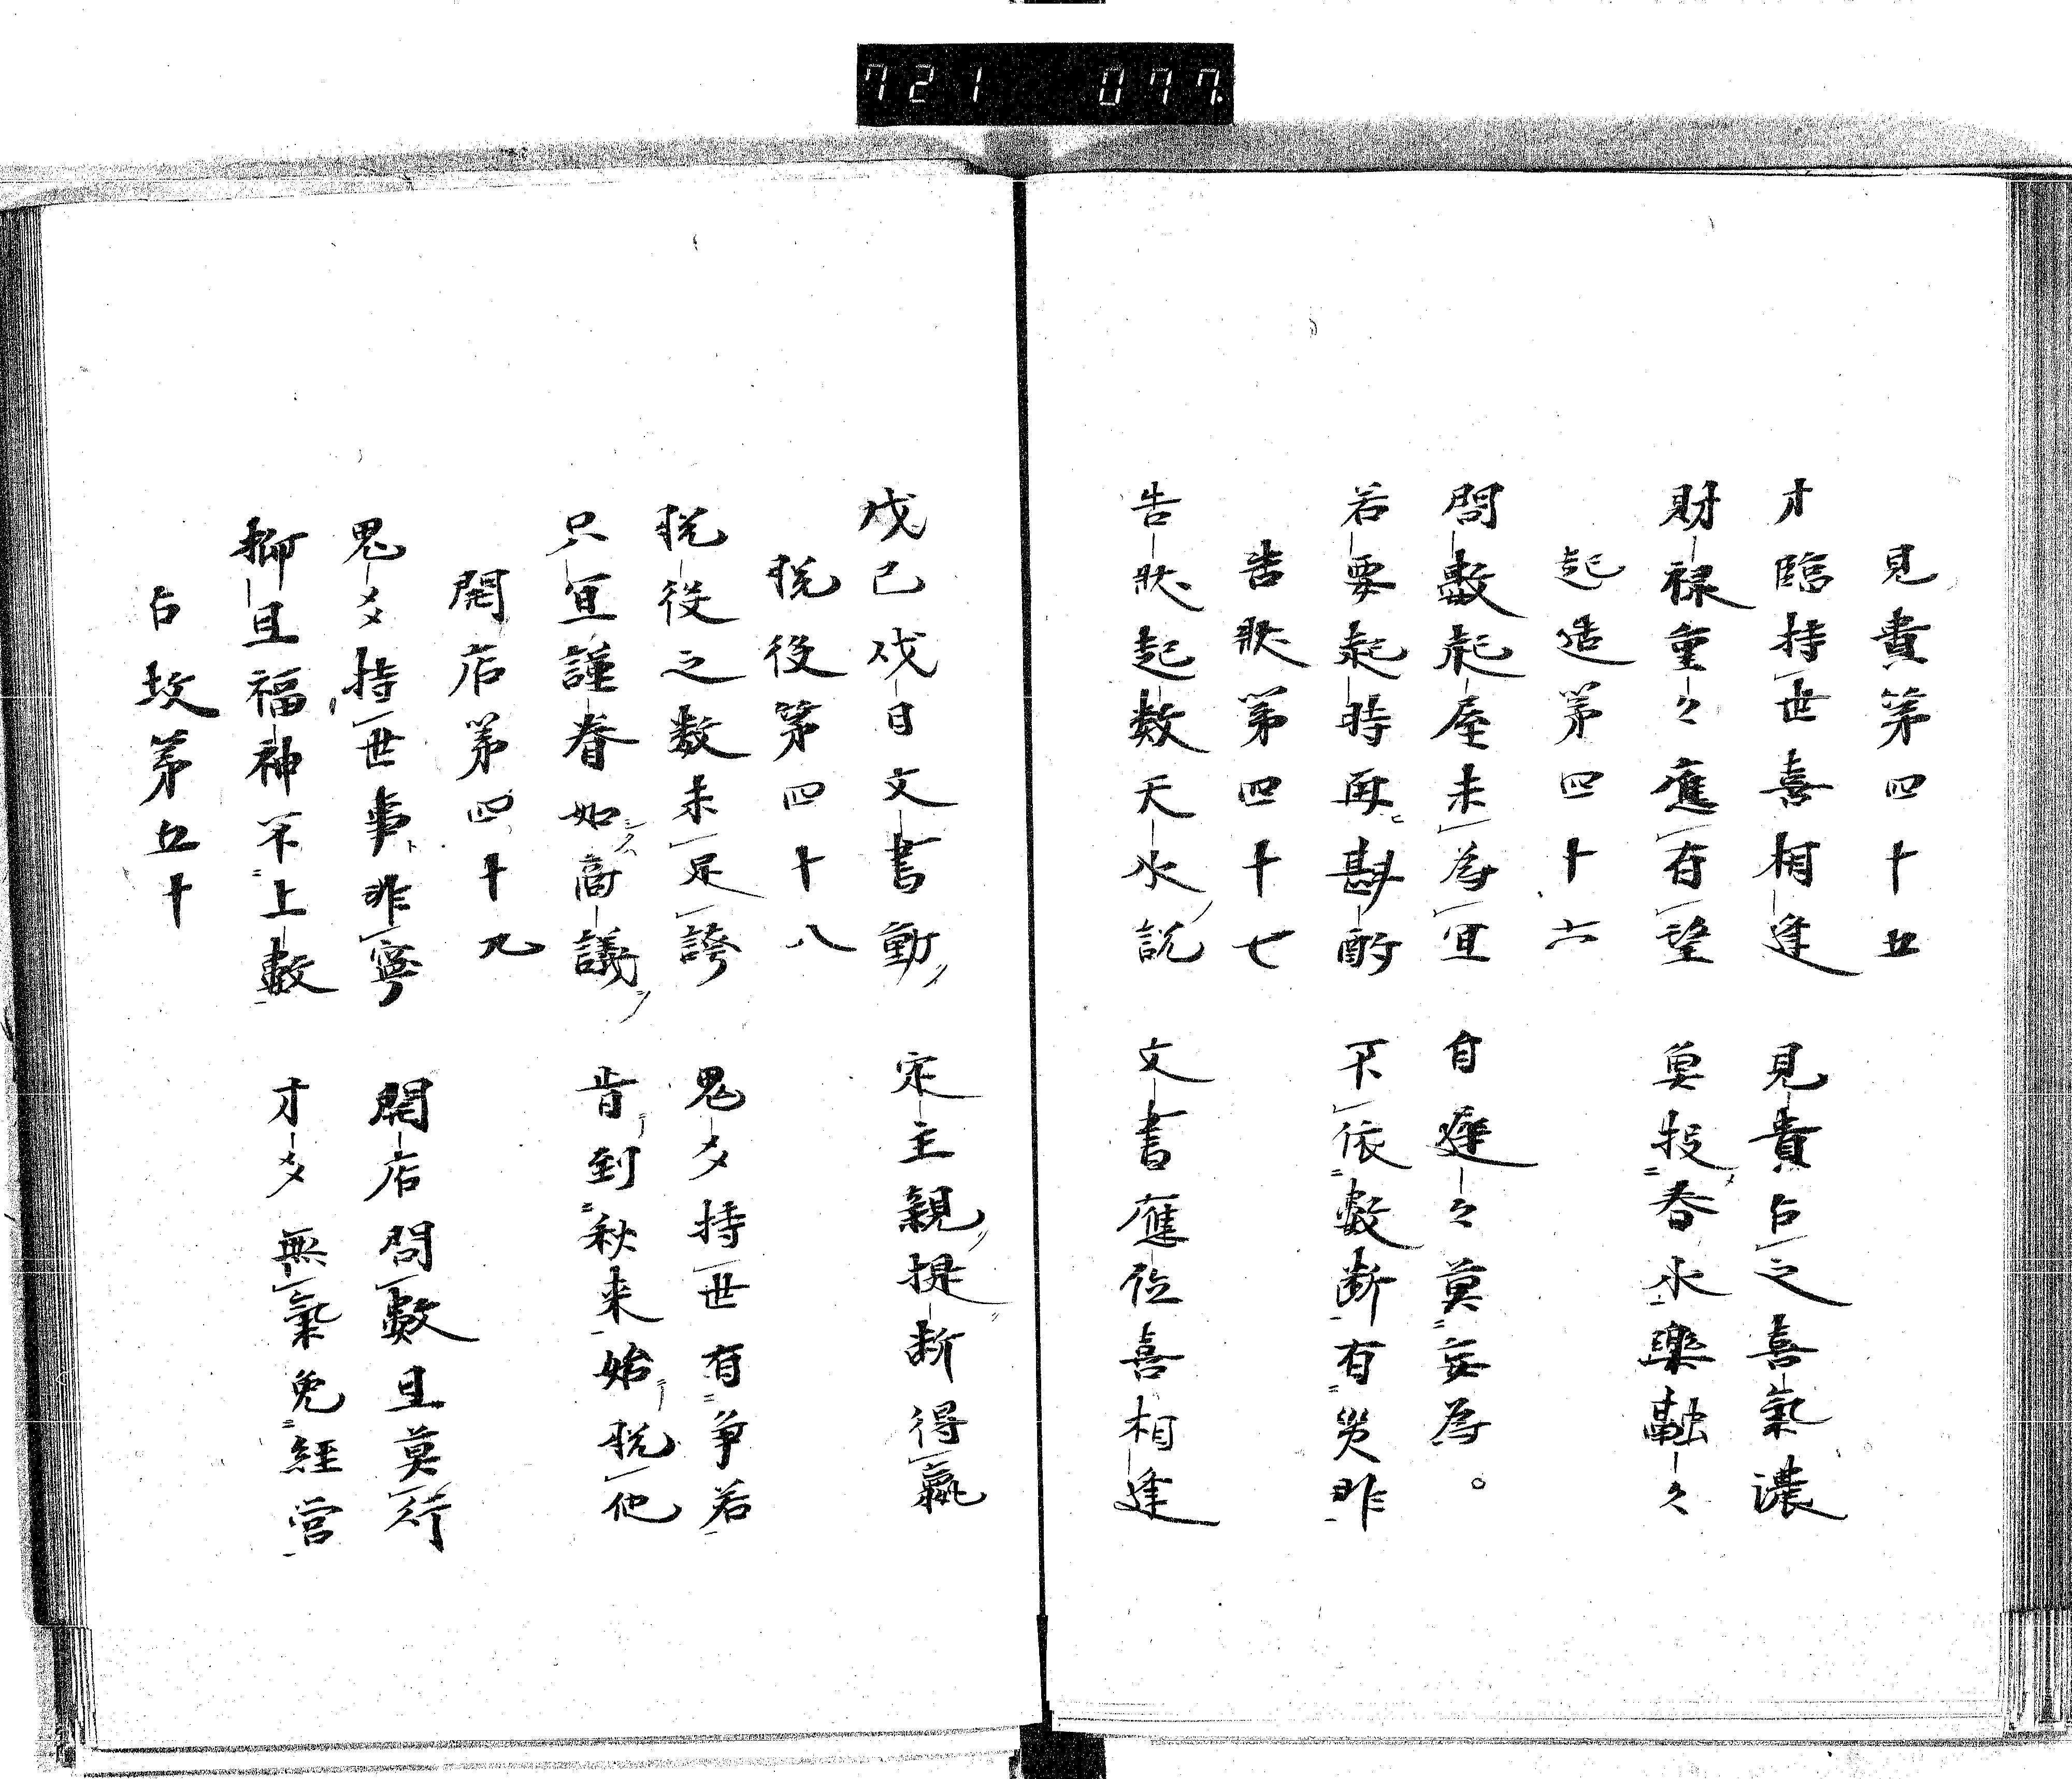 721 077.
見貴第四十五
才臨持世喜相逢 見貴占之喜氣濃
財禄重々應有望 莫投春水樂融々
起造第四十六
問數起屋未為宜 自遲々莫妄為。
若要起時再斟酌 不依數断有災非
告狀第四十七
告狀起数天水說 文書應位喜相逢
戊己戌日文書動 定主親提断得贏
脱役第四十八
脱役之数未足誇 鬼多持世有争若
只宜謹眷如商議 肯到秋来始脱他
開店第四十九
鬼多持世事非寧 開店問數且莫行
抑且福神不上數 才多無氣免經営
占坟第五十